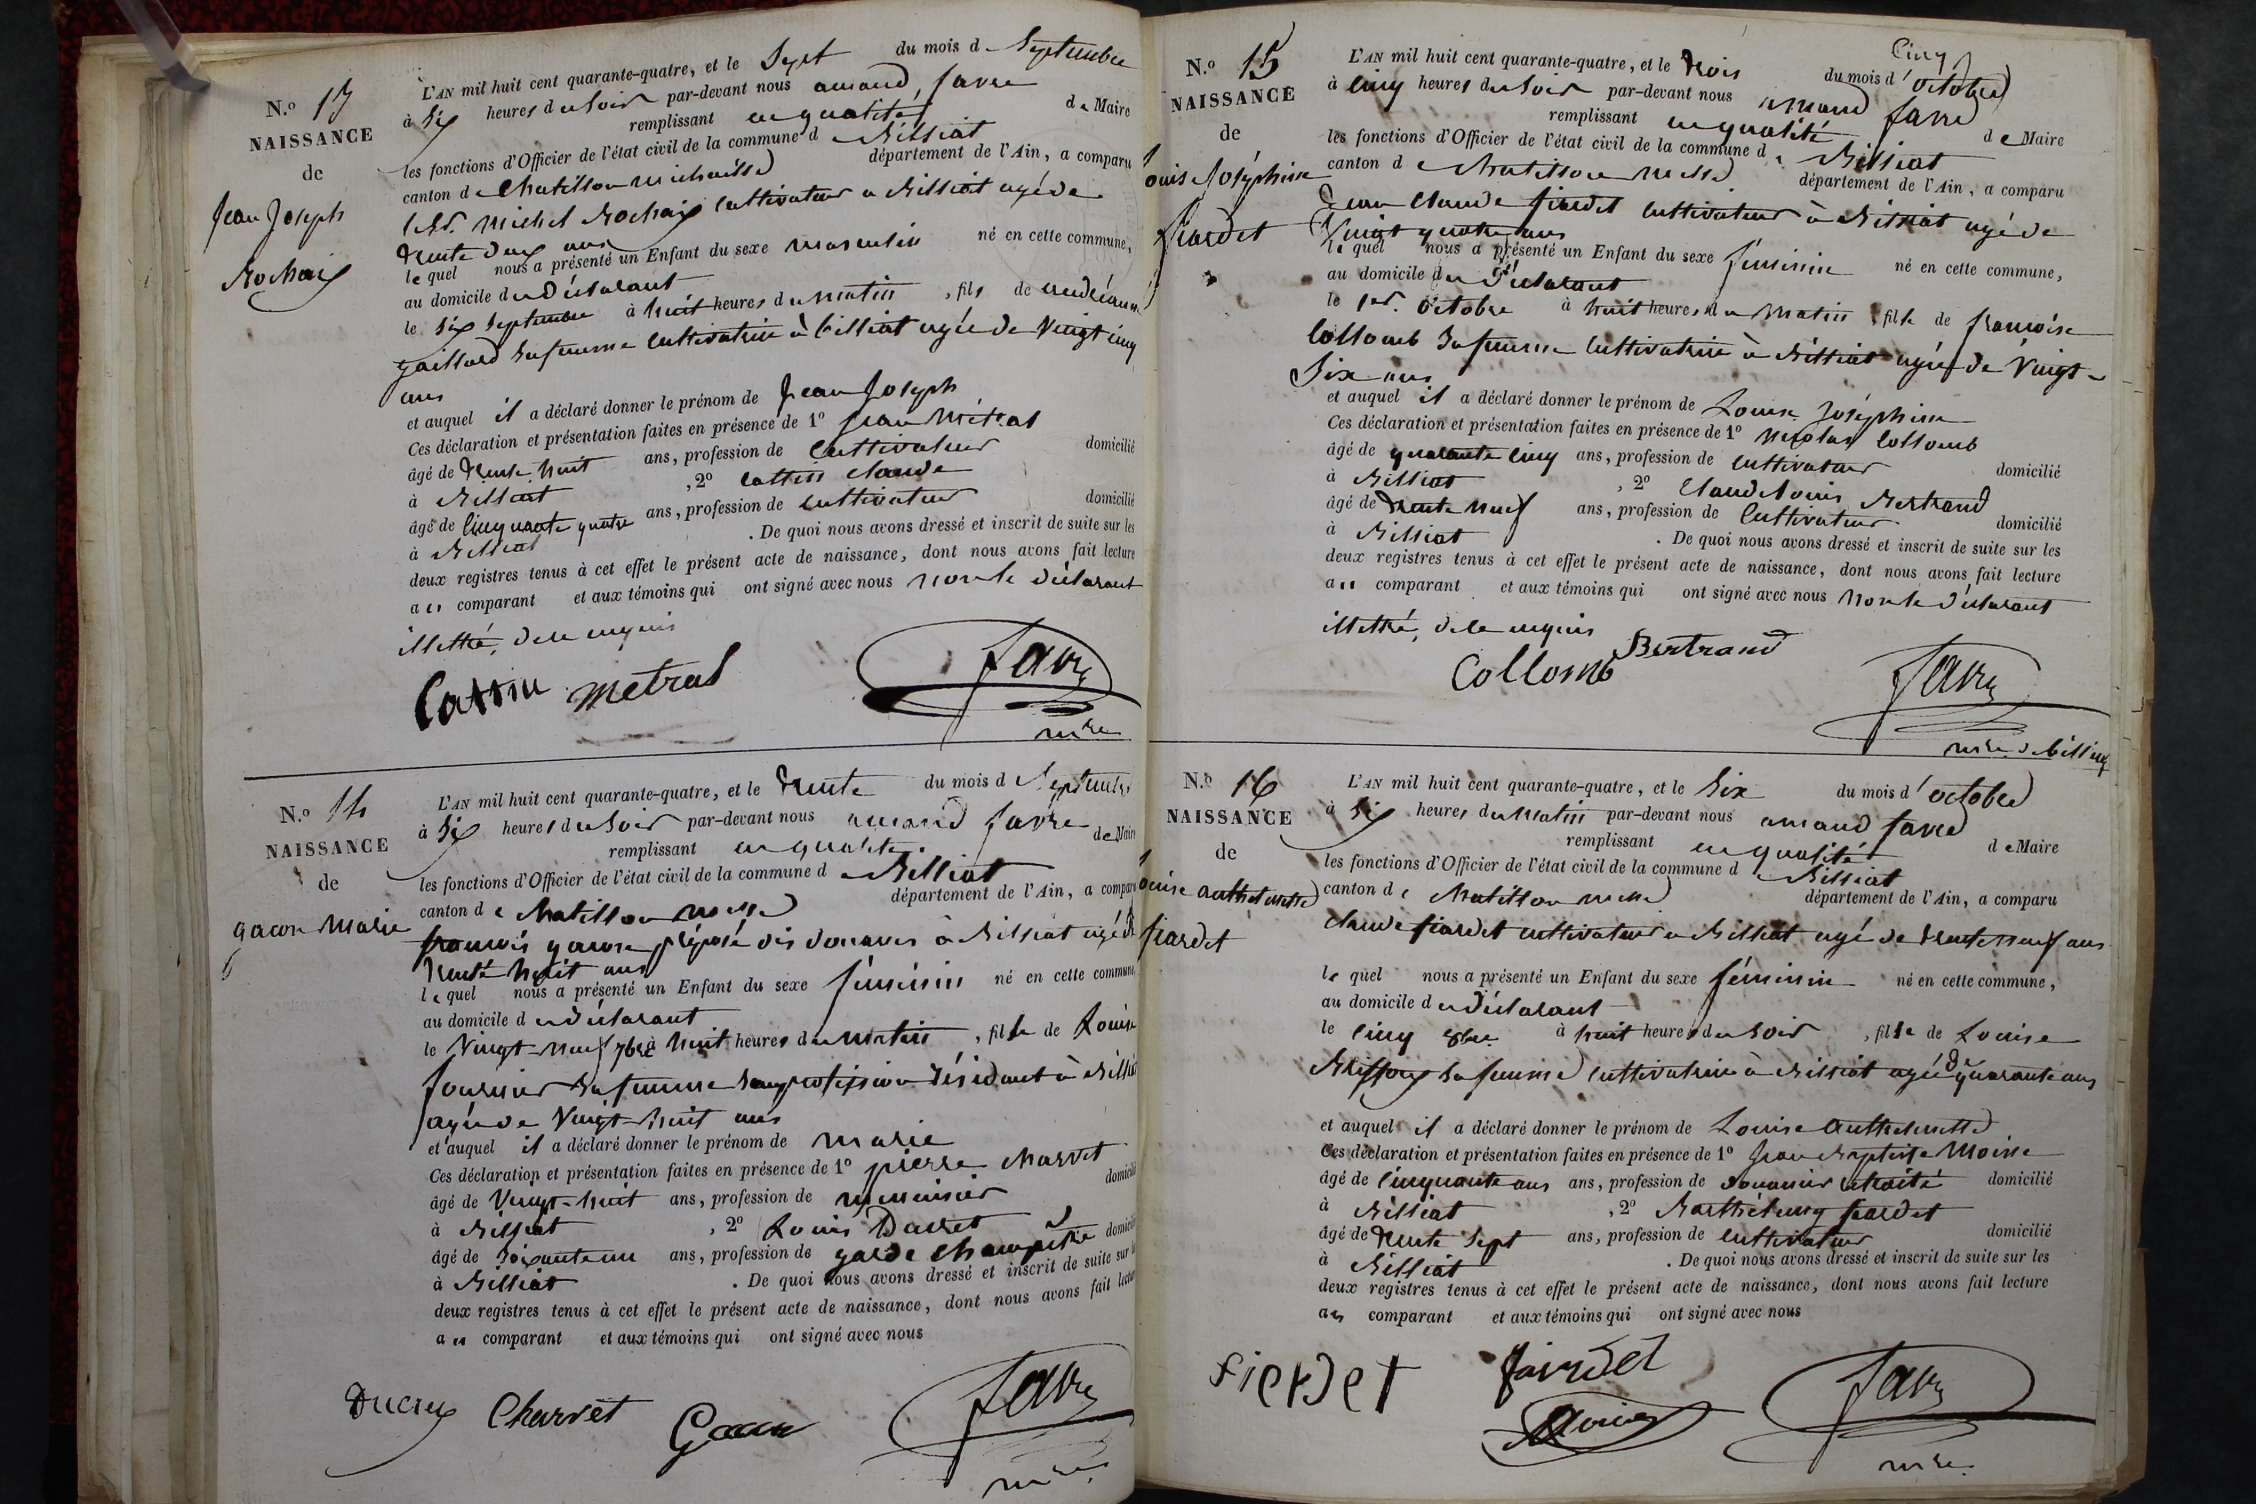 N.º 13
NAISSANCE
de
Jean Joseph
Rochaix
L'AN mil huit cent quarante-quatre, et le Sept du mois de Septembre
à Six heures du Soir par-devant nous amand favre
remplissant en qualité de Maire
les fonctions d'Officier de l'état civil de la commune de Billiat
canton de Chatillon michaille département de l'Ain, a comparu
le Sr. Michel Rochaix cultivateur a Billiat agé de
trente deux ans
lequel nous a présenté un Enfant du sexe masculin né en cette commune,
au domicile du déclarant
le Six Septembre à huit heures du matin, fils de
gaillard Sa femme cultivatrice à billiat agée de Vingt cinq
ans
et auquel il a déclaré donner le prénom de Jean Joseph
Ces déclaration et présentation faites en présence de 1º Jean Métral
âgé de trente huit ans, profession de cultivateur domicilié
à Billiat, 2º Cattin Claude
âgé de Cinquante quatre ans, profession de cultivateur domicilié
à Billiat. De quoi nous avons dressé et inscrit de suite sur les
deux registres tenus à cet effet le présent acte de naissance, dont nous avons fait lecture
au comparant et aux témoins qui ont signé avec nous non le déclarant
illettré, de ce enquis
Cattin metral favre
mre
N.º 14
NAISSANCE
de
gacon Marie
L'AN mil huit cent quarante-quatre, et le trente du mois de Septembre
à Six heures du Soir par-devant nous amand favre
remplissant en qualité de Maire
les fonctions d'Officier de l'état civil de la commune de Billiat
canton de Chatillon département de l'Ain, a comparu
françois gacon préposé des douanes à Billiat agé de
trente huit ans
lequel nous a présenté un Enfant du sexe féminin né en cette commune,
au domicile du déclarant
le Vingt-neuf 7bre à huit heures du matin, fille de Louise
fournier Sa femme Sans profession résidant à Billiat
agée de Vingt-huit ans
et auquel il a déclaré donner le prénom de marie
Ces déclaration et présentation faites en présence de 1º pierre Charvet
âgé de Vingt-huit ans, profession de menuisier domicilié
à Billiat, 2º Louis
âgé de Soixante un ans, profession de garde champêtre domicilié
à Billiat. De quoi nous avons dressé et inscrit de suite sur les
deux registres tenus à cet effet le présent acte de naissance, dont nous avons fait lecture
au comparant et aux témoins qui ont signé avec nous
Ducrey Charvet Gacon favre
mre.
N.º 15
NAISSANCE
de
Louise Joséphine
fiardet
Cinq
L'AN mil huit cent quarante-quatre, et le trois du mois d'octobre
à cinq heures du Soir par-devant nous amand favre
remplissant en qualité de Maire
les fonctions d'Officier de l'état civil de la commune de Billiat
canton de Chatillon département de l'Ain, a comparu
Jean Claude fiardet cultivateur à Billiat agé de
Vingt quatre ans
lequel nous a présenté un Enfant du sexe féminin né en cette commune,
au domicile du déclarant
le 1er. octobre à huit heures du matin, fille de françoise
Collomb Sa femme cultivatrice à Billiat agée de Vingt-
Six ans
et auquel il a déclaré donner le prénom de Louise Joséphine
Ces déclaration et présentation faites en présence de 1º Nicolas Collomb
âgé de quarante cinq ans, profession de cultivateur domicilié
à Billiat, 2º Claude Louis Bertrand
âgé de trente neuf ans, profession de cultivateur domicilié
à Billiat. De quoi nous avons dressé et inscrit de suite sur les
deux registres tenus à cet effet le présent acte de naissance, dont nous avons fait lecture
au comparant et aux témoins qui ont signé avec nous non le déclarant
illettré, de ce enquis
Bertrand
Collomb favre
mre de billiat
N.º 16
NAISSANCE
de
Louise
fiardet
L'AN mil huit cent quarante-quatre, et le Six du mois d'octobre
à Six heures du matin par-devant nous amand favre
remplissant en qualité de Maire
les fonctions d'Officier de l'état civil de la commune de Billiat
canton de Chatillon département de l'Ain, a comparu
claude fiardet cultivateur a Billiat agé de trente neuf ans
lequel nous a présenté un Enfant du sexe féminin né en cette commune,
au domicile du déclarant
le cinq 8bre à huit heures du Soir, fille de Louise
Sa femme cultivatrice à Billiat agée de quarante ans
et auquel il a déclaré donner le prénom de Louise
Ces déclaration et présentation faites en présence de 1º Jean Baptiste Moine
âgé de cinquante ans ans, profession de douanier retraité domicilié
à Billiat, 2º Barthélemy fiardet
âgé de trente Sept ans, profession de cultivateur domicilié
à Billiat. De quoi nous avons dressé et inscrit de suite sur les
deux registres tenus à cet effet le présent acte de naissance, dont nous avons fait lecture
au comparant et aux témoins qui ont signé avec nous
fierdet favre
mre.